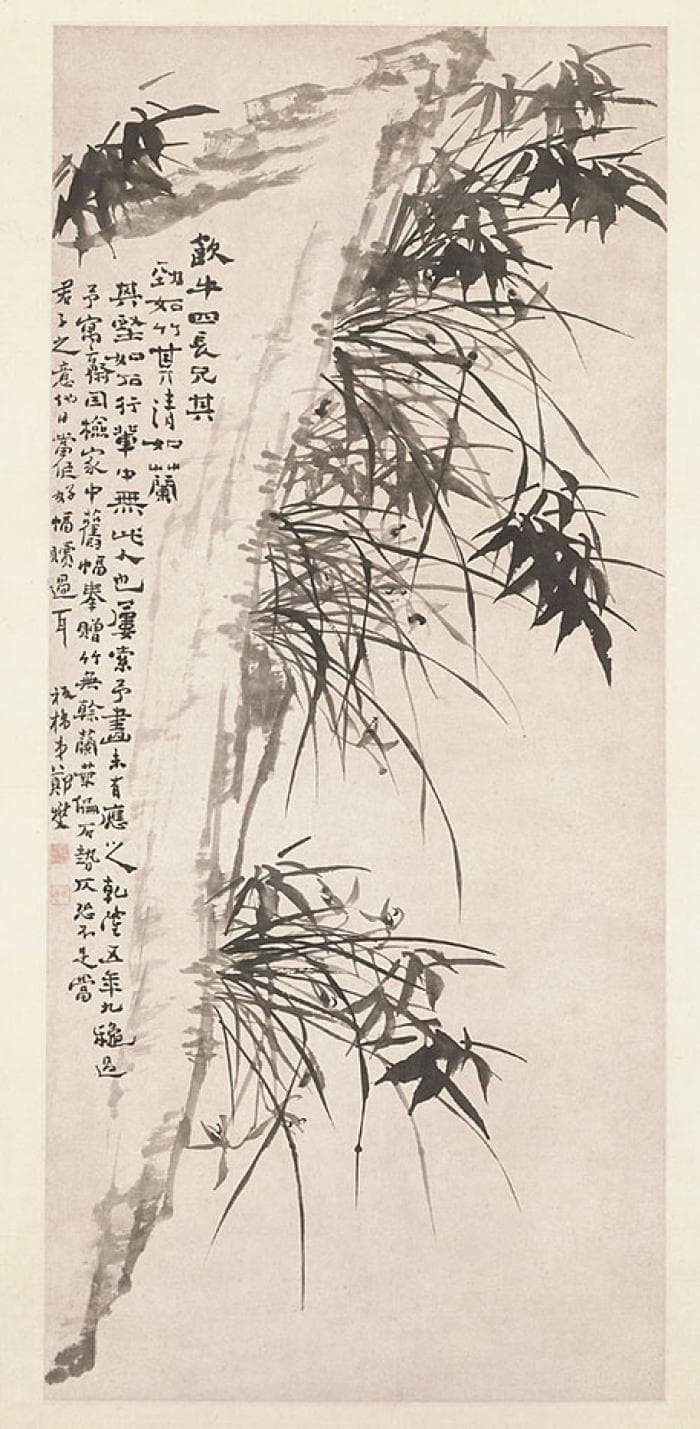 飲牛四長兄其
勁如竹其清如蘭
其堅如石行輩中無此人也屢索予畫未有應之乾隆五年九秋過
予寓齋因檢家中舊幅奉贈竹無幹蘭葉偏石勢仄恐不足當
君子之意他日當作好幅贖過耳 板橋弟鄭燮